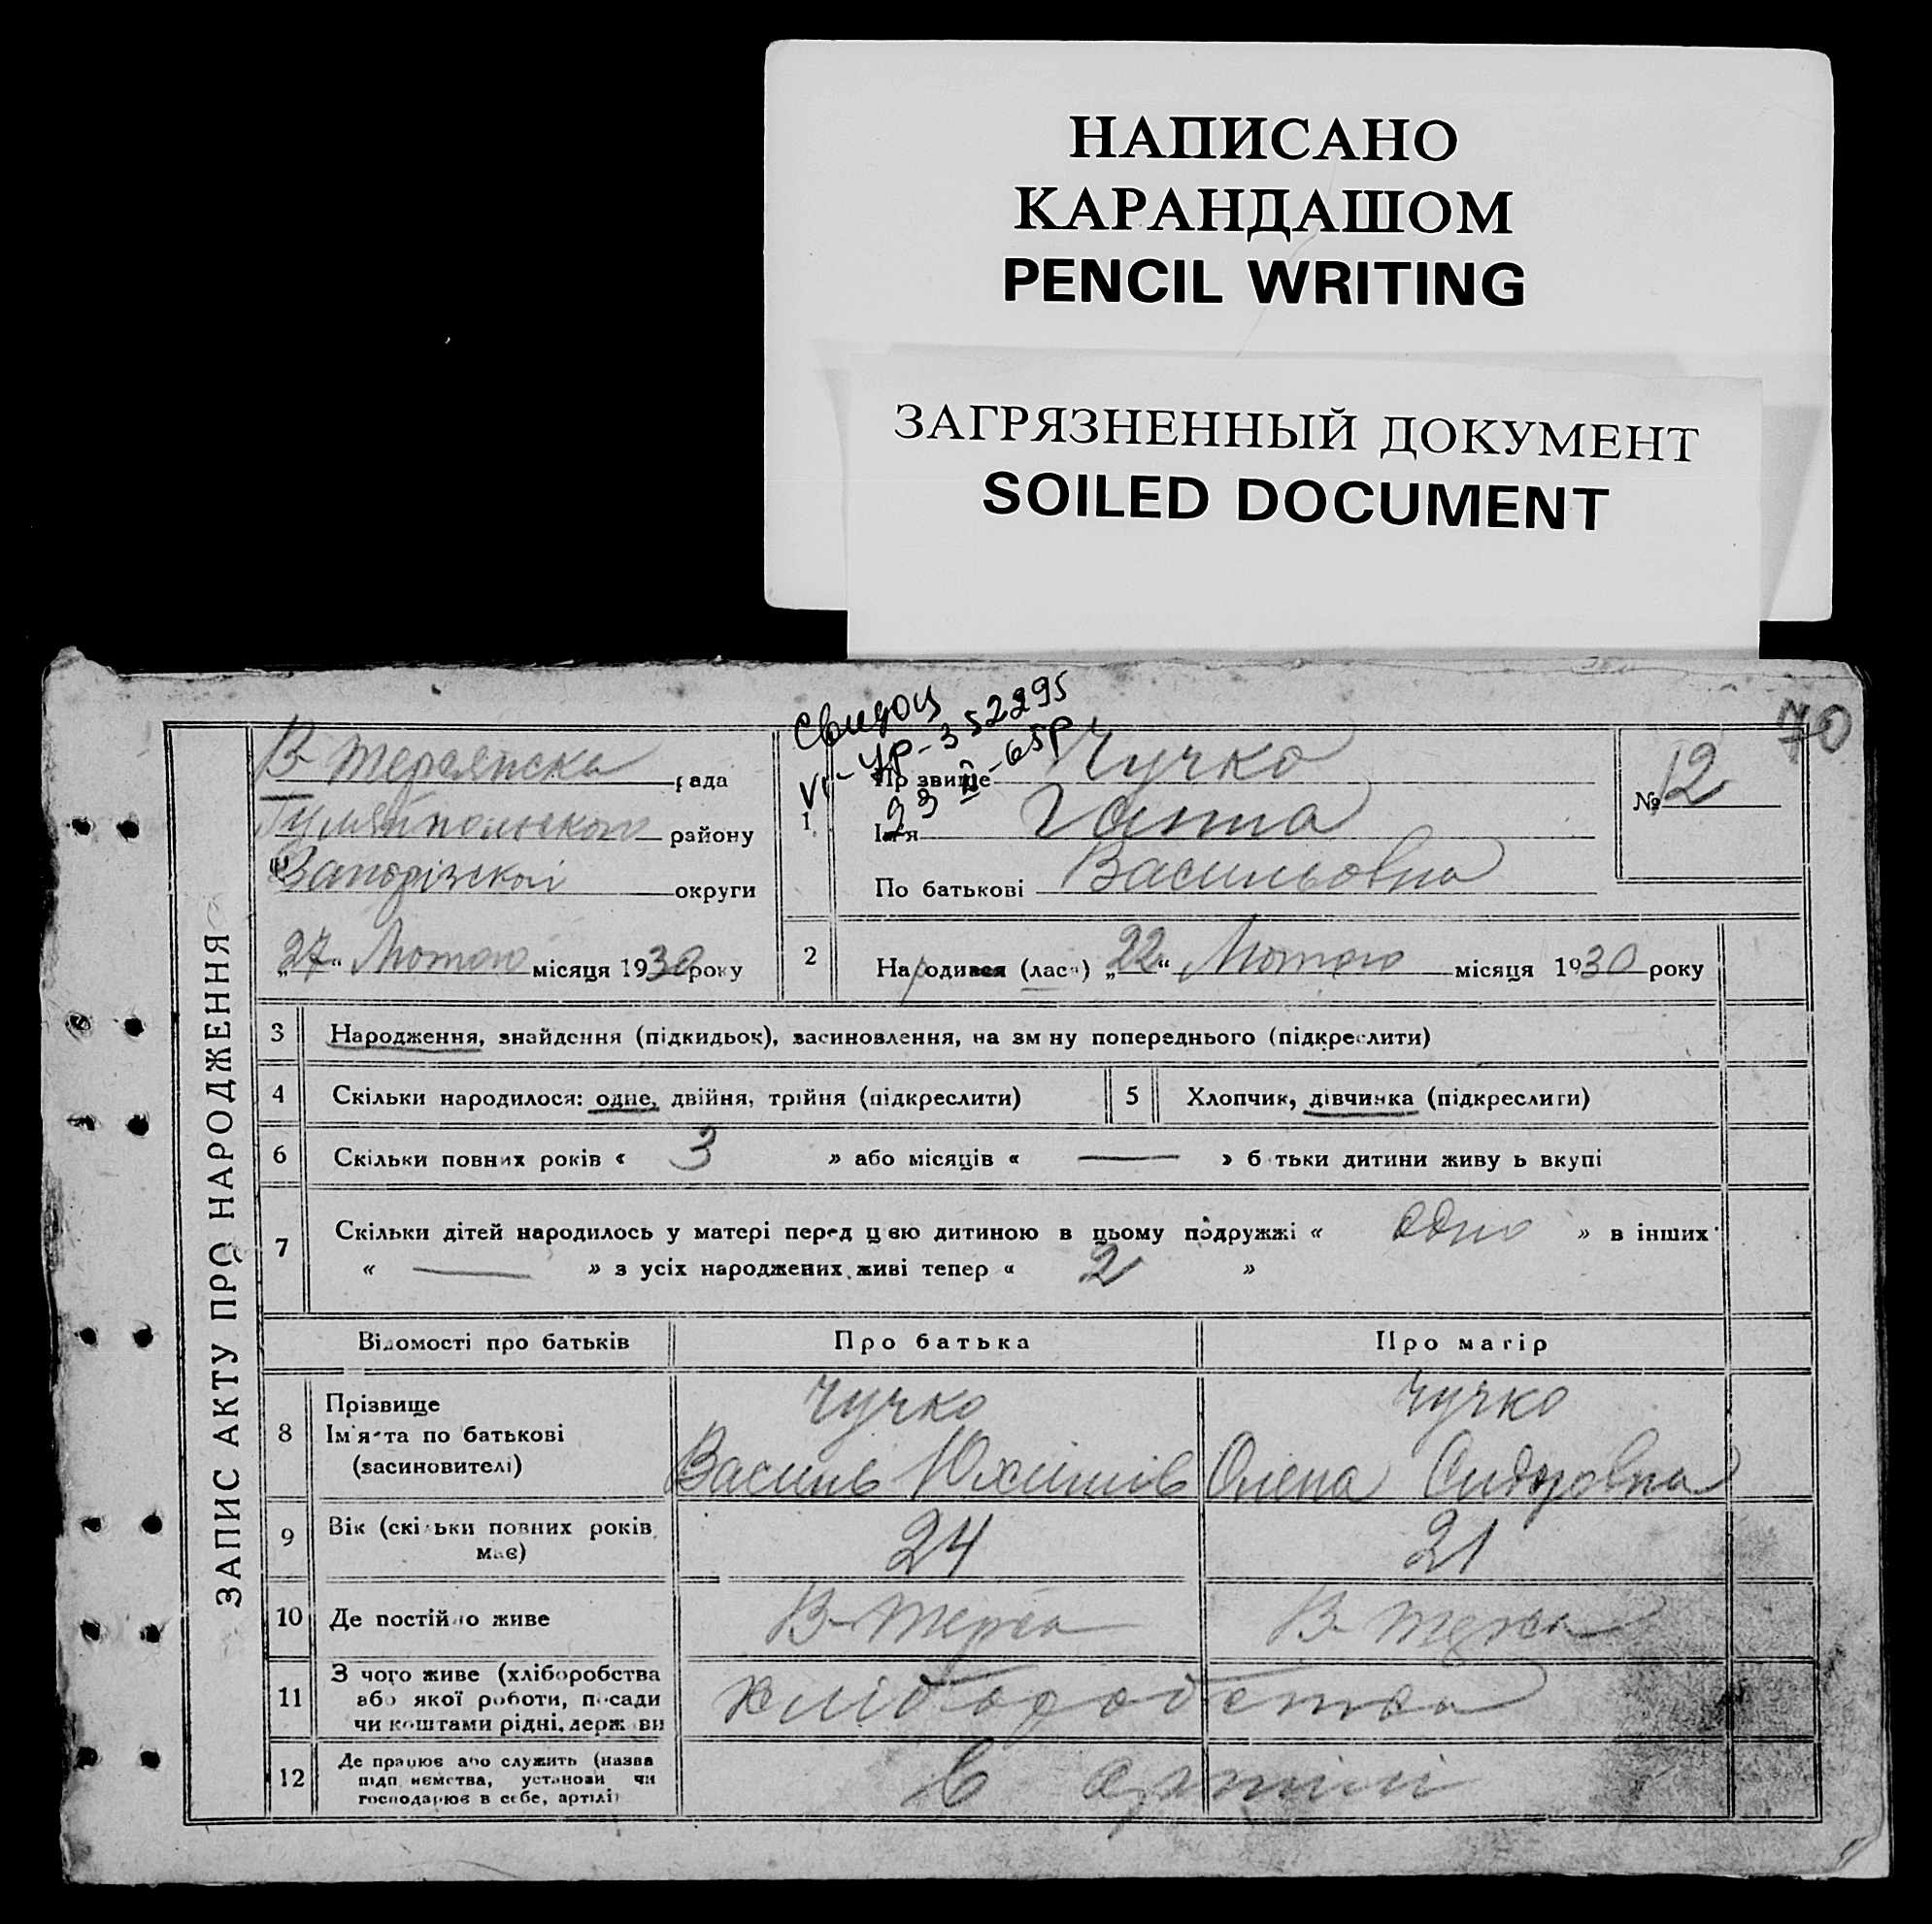 НАПИСАНО
КАРАНДАШОМ
PENCIL WRITING
ЗАГРЯЗНЕННЫЙ ДОКУМЕНТ
SOILED DOCUMENT
70
Свидоц
VI-УР-352295
23 II-65р
ЗАПИС АКТУ ПРО НАРОДЖЕННЯ
В-Терсянска рада
Гуляйпольского району
Запорізскої округи
„27“ Лютого місяця 1930 року
1
Прізвище Чучко
Ім'я Ганна
По батькові Васильовна
№ 12
2 Народився (лася) „22“ Лютого місяця 1930 року
3 Народження, знайдення (підкидьок), засиновлення, на зміну попереднього (підкреслити)
4 Скільки народилося: одне, двійня, трійня (підкреслити) 5 Хлопчик, дівчинка (підкреслити)
6 Скільки повних років « 3 » або місяців « — » батьки дитини живуть вкупі
7 Скільки дітей народилось у матері перед цією дитиною в цьому подружжі « одно » в інших
« — » з усіх народжених живі тепер « 2 »
Відомості про батьків Про батька Про матір
8 Прізвище Чучко Чучко
Ім'я та по батькові Василь Юхимів Олена Сидоровна
(засиновителі)
9 Вік (скільки повних років має) 24 21
10 Де постійно живе В-Терса В-Терса
11 З чого живе (хліборобства
або якої роботи, посади хліборобства
чи коштами рідні, держави
12 Де працює або служить (назва
підприємства, установи чи в артілі
господарює в себе, артілі)